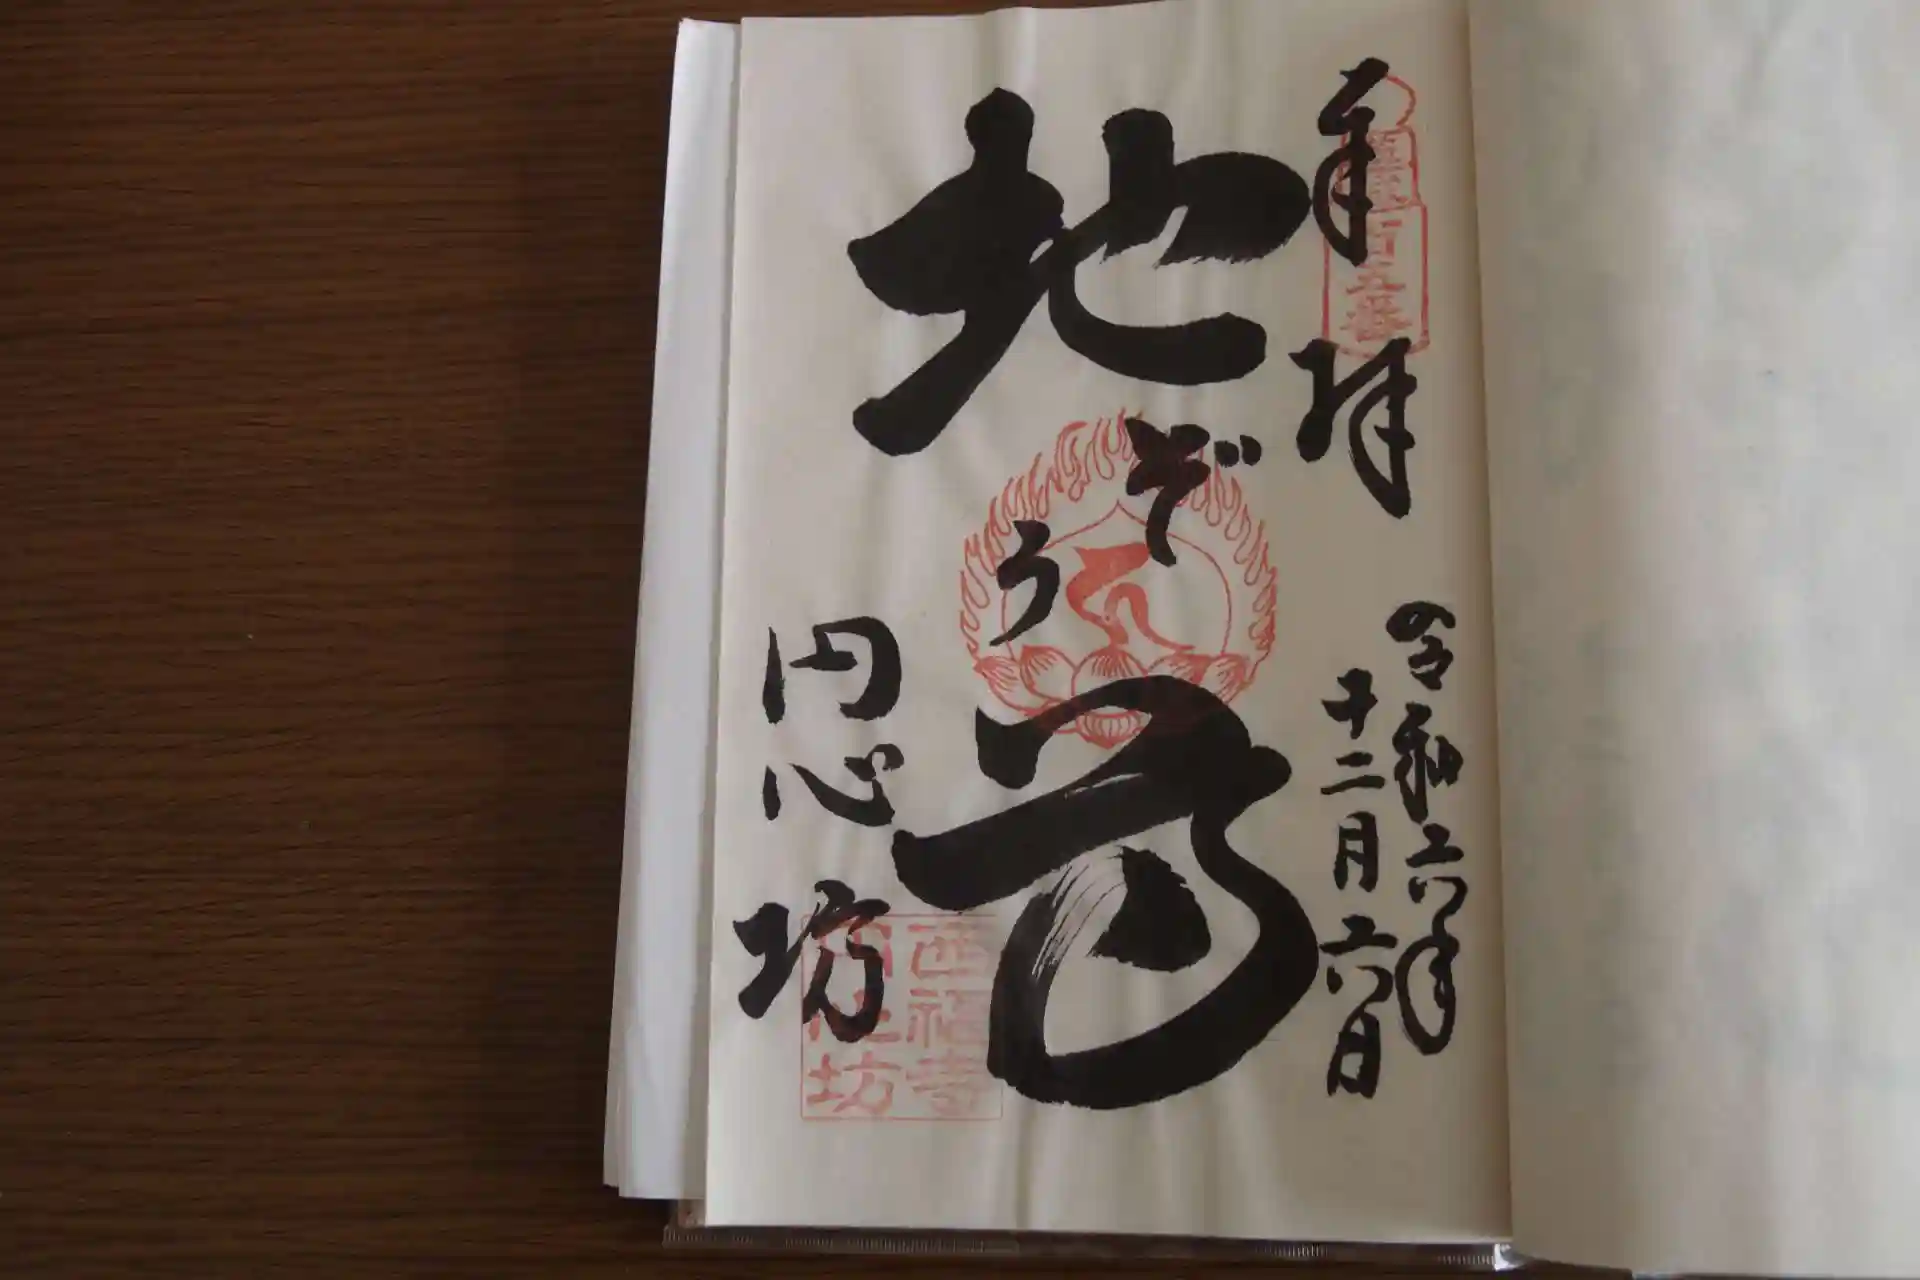 奉拝
百五番
令和六年
十二月六日
地ぞう尊
円心坊
西福寺
円心坊